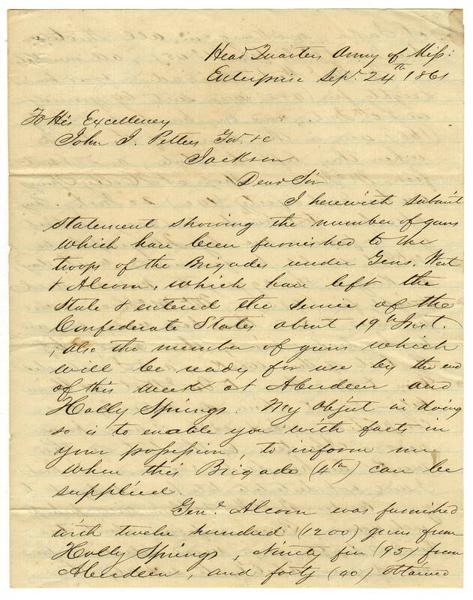 Head Quarters Army of Miss:
Enterprise Sept. 24th 1861
To His Excellency
John J. Pettus Gov. &c
Jackson
Dear Sir
I herewith submit
statement showing the number of guns
which have been furnished to the
troops of the Brigades under Genls. West
& Alcorn, which have left the
State & entered the service of the
Confederate States about 19th Inst.
; also the number of guns which
will be ready for use by the end
of this week at Aberdeen and
Holly Springs. My object in doing
so is to enable you with facts in
your possession, to inform me
when this Brigade (4th) can be
supplied.
Genl. Alcorn was furnished
with twelve hundred (1200) guns from
Holly Springs, Ninety five (95) from
Aberdeen, and forty (40) obtained